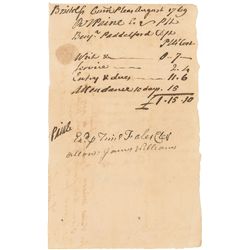 Bristol ss Com̄ Pleas August 1769
R T Paine Esq Plt
Benjn Peddelford Dft
Plt Cost
Writ &c 0 - 7 -
Service 2 - 4
Entry & dues 11 - 6
Attendance 10 days 15
£1 - 15 - 10
Paid
Exd p Timo Fales Cler
Allowd James Williams